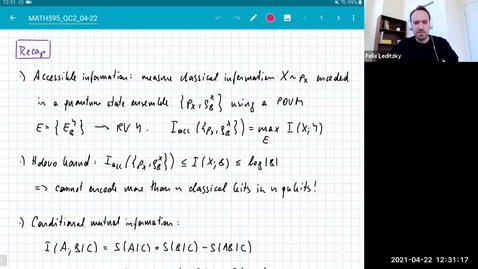 12:31
MATH595_QC2_04-22
1
Recap
·) Accessible information: measure classical information X ~ p_X encoded
in a quantum state ensemble {p_x, ρ_B^x} using a POVM
E = {E_B^y} → RV Y. I_acc({p_x, ρ_B^x}) = max_E I(X;Y)
·) Holevo bound: I_acc({p_x, ρ_B^x}) ≤ I(X;B) ≤ log|B|
⇒ cannot encode more than n classical bits in n qubits!
·) Conditional mutual information:
I(A;B|C) = S(A|C) + S(B|C) − S(AB|C)
Felix Leditzky
2021-04-22 12:31:17